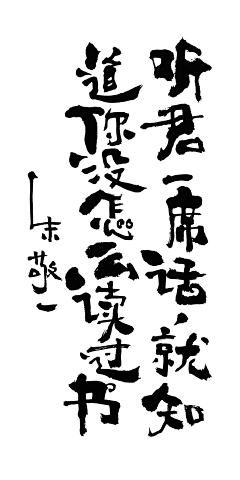 听君一席话，就知
道你没怎么读过书
上末敬一